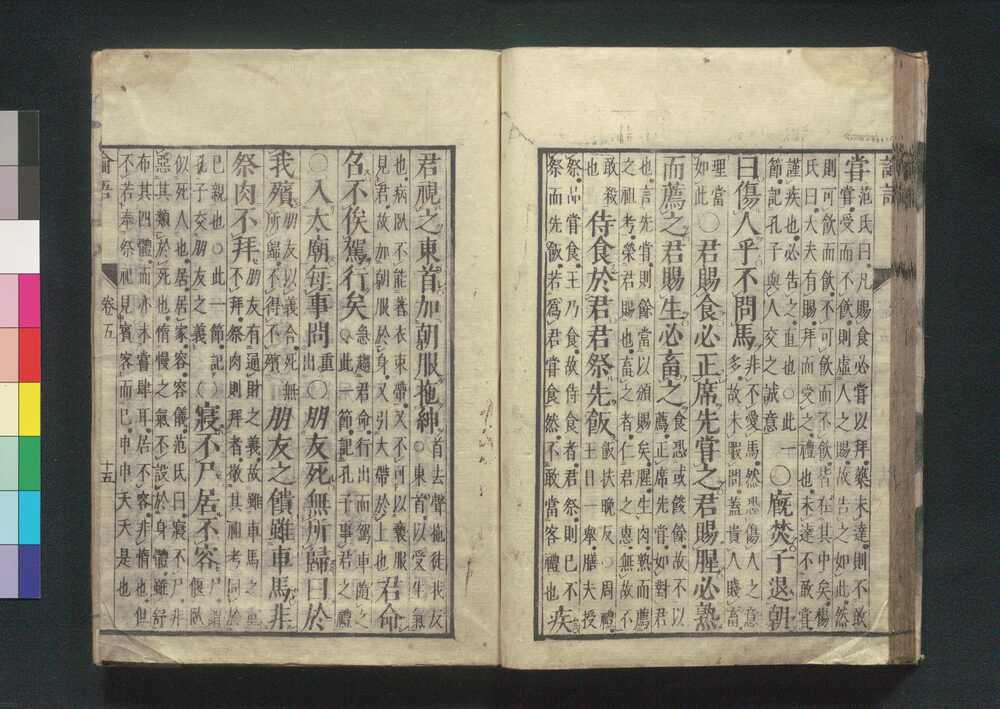 論語
嘗
范氏曰凡賜食必嘗以拜藥未達則不敢
嘗受而不飲則虛人之賜故告之如此然
則可飲而飲不可飲而不飲皆在其中矣楊
氏曰大夫有賜拜而受之禮也未達不敢嘗
謹疾也必告之直也〇此一
節記孔子與人交之誠意
〇廐焚子退朝
曰傷人乎不問馬
非不愛馬然恐傷人之意
多故未暇問蓋貴人賤畜
理當
如此
〇君賜食必正席先嘗之君賜腥必熟
而薦之君賜生必畜之
食恐或餕餘故不以
薦正席先嘗如對君
也言先嘗則餘當以頒賜矣腥生肉熟而薦
之祖考榮君賜也畜之者仁君之惠無故不
敢殺
也
侍食於君君祭先飯
飯扶晚反〇周禮
王日一舉膳夫授
祭品嘗食王乃食故侍食者君祭則己不
祭而先飯若為君嘗食然不敢當客禮也
疾
君視之東首加朝服拖紳
首去聲拖徒我反
〇東首以受生氣
也病臥不能著衣束帶又不可以褻服
見君故加朝服於身又引大帶於上也
君命
召不俟駕行矣
急趨君命行出而駕車隨之
〇此一節記孔子事君之禮
〇入太廟每事問
重
出
〇朋友死無所歸曰於
我殯
朋友以義合死無
所歸不得不殯
朋友之饋雖車馬非
祭肉不拜
朋友有通財之義故雖車馬之重
不拜祭肉則拜者敬其祖考同於
己親也〇此一節記
孔子交朋友之義
〇寢不尸居不容
尸謂
偃臥
似死人也居居家容容儀范氏曰寢不尸非
惡其類於死也惰慢之氣不設於身體雖舒
布其四體而亦未嘗肆耳居不容非惰也但
不若奉祭祀見賓客而已申申夭夭是也
論語
卷五
十五